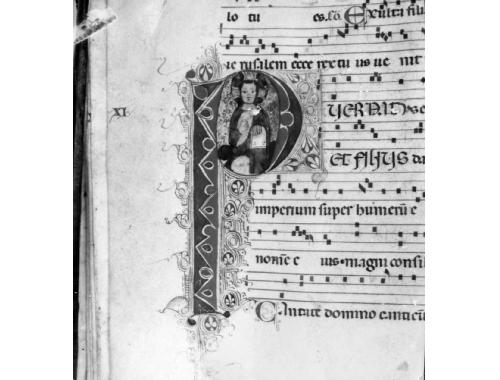 lo tu es. co. Exulta fili
ie rusalem ecce rex tu us ue nit
XI
PUER NATUS
ET FILIUS da
imperium super humerū e
ius. magni consili
Cantate domino canticū